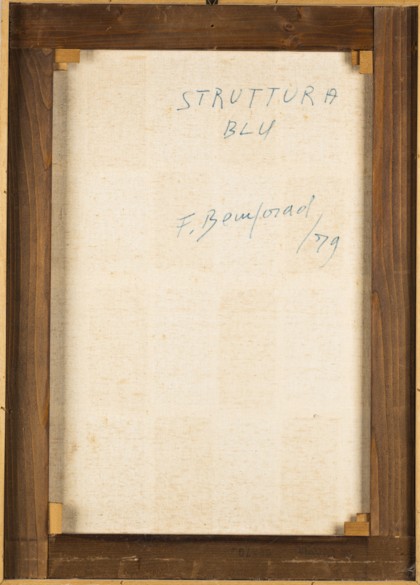 STRUTTURA
BLU
F. Bemporad